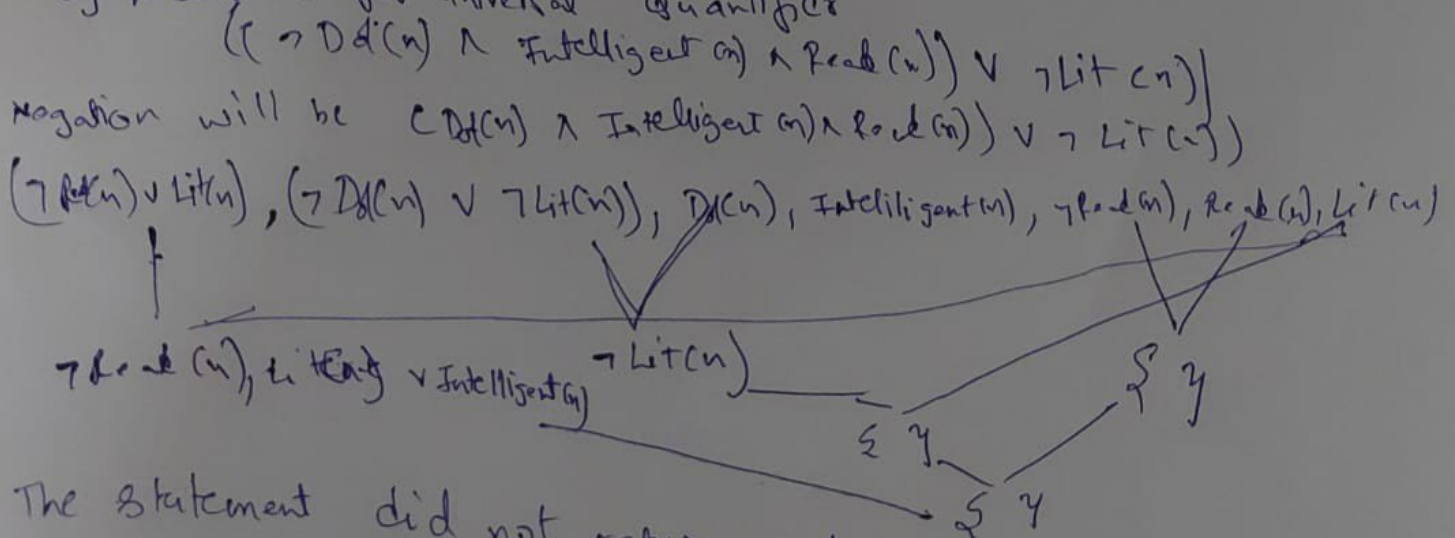 Quantifier
((¬Dd(n) ∧ Intelligent(n) ∧ Read(n)) ∨ ¬Lit(n))
Negation will be (Dd(n) ∧ Intelligent(n) ∧ Read(n)) ∨ ¬Lit(n))
(¬Read(n) ∨ Lit(n)), (¬Dd(n) ∨ ¬Lit(n)), Dd(n), Inteliligent(n), ¬Read(n), Read(n), Lit(n)
¬Read(n), Lit(n) ∨ Intelligent(n) ¬Lit(n)
{ }
{ }
{ }
The statement did not